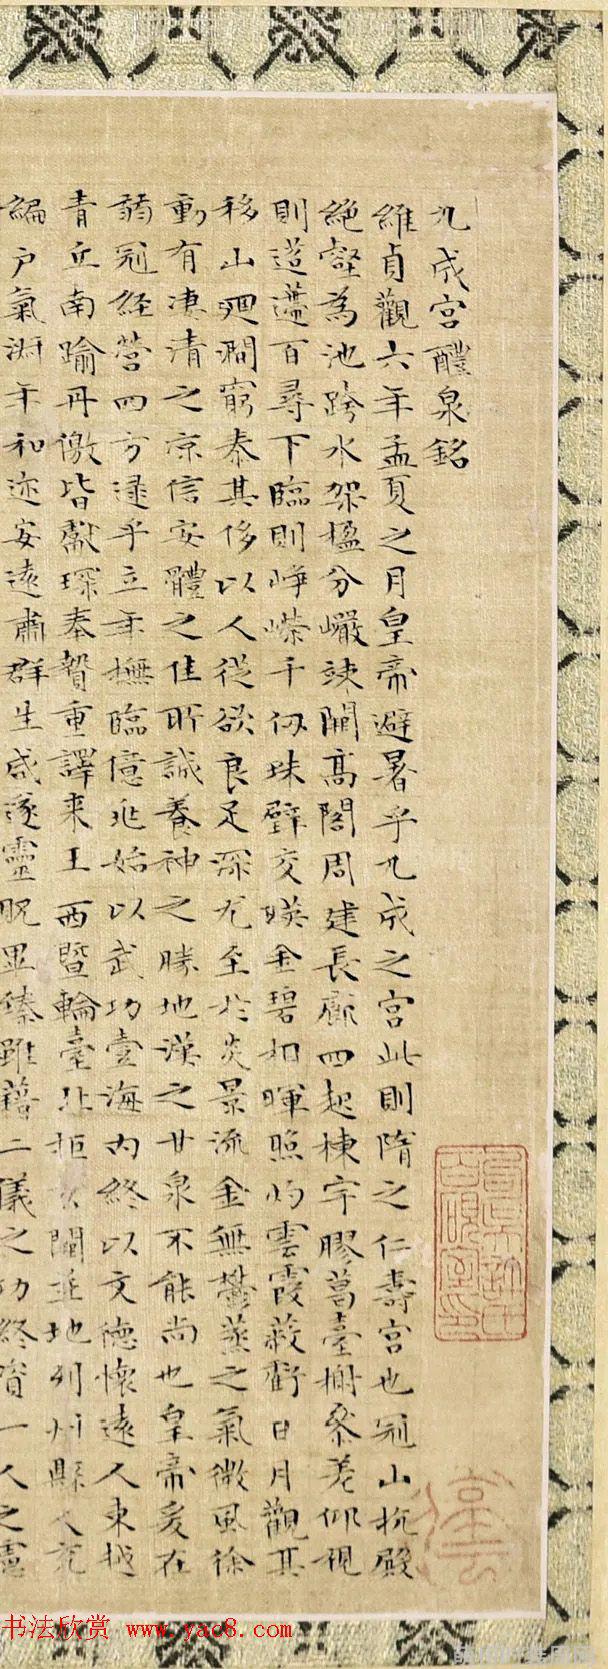 九成宮醴泉銘
維貞觀六年孟夏之月皇帝避暑乎九成之宮此則隋之仁壽宮也冠山抗殿
絕壑為池跨水架楹分巖竦闕高閣周建長廊四起棟宇膠葛臺榭參差仰視
則迢遰百尋下臨則崢嶸千仞珠璧交暎金碧相暉照灼雲霞蔽虧日月觀其
移山迴澗窮泰其侈以人從欲良足深尤至於炎景流金無鬱蒸之氣微風徐
動有凄清之凉信安體之佳所誠養神之勝地漢之甘泉不能尚也皇帝爰在
弱冠經營四方逮乎立年撫臨億兆始以武功壹海內終以文德懷遠人東越
青丘南踰丹儌皆獻琛奉贄重譯来王西暨輪臺北拒玄闕並地列州縣人充
編戶氣淑年和迩安遠肅群生咸遂靈貺畢臻雖藉二儀之功終資一人之慮
书法欣赏 www.yac8.com